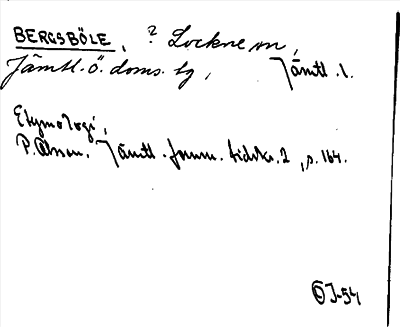 BERGSBÖLE, ? Lockne sn,
Jämtl. ö. doms. tg, Jämtl. l.
Etymologi,
P. Olsson. Jämtl. fornm. tidskr. 2, s. 164.
OJ-54